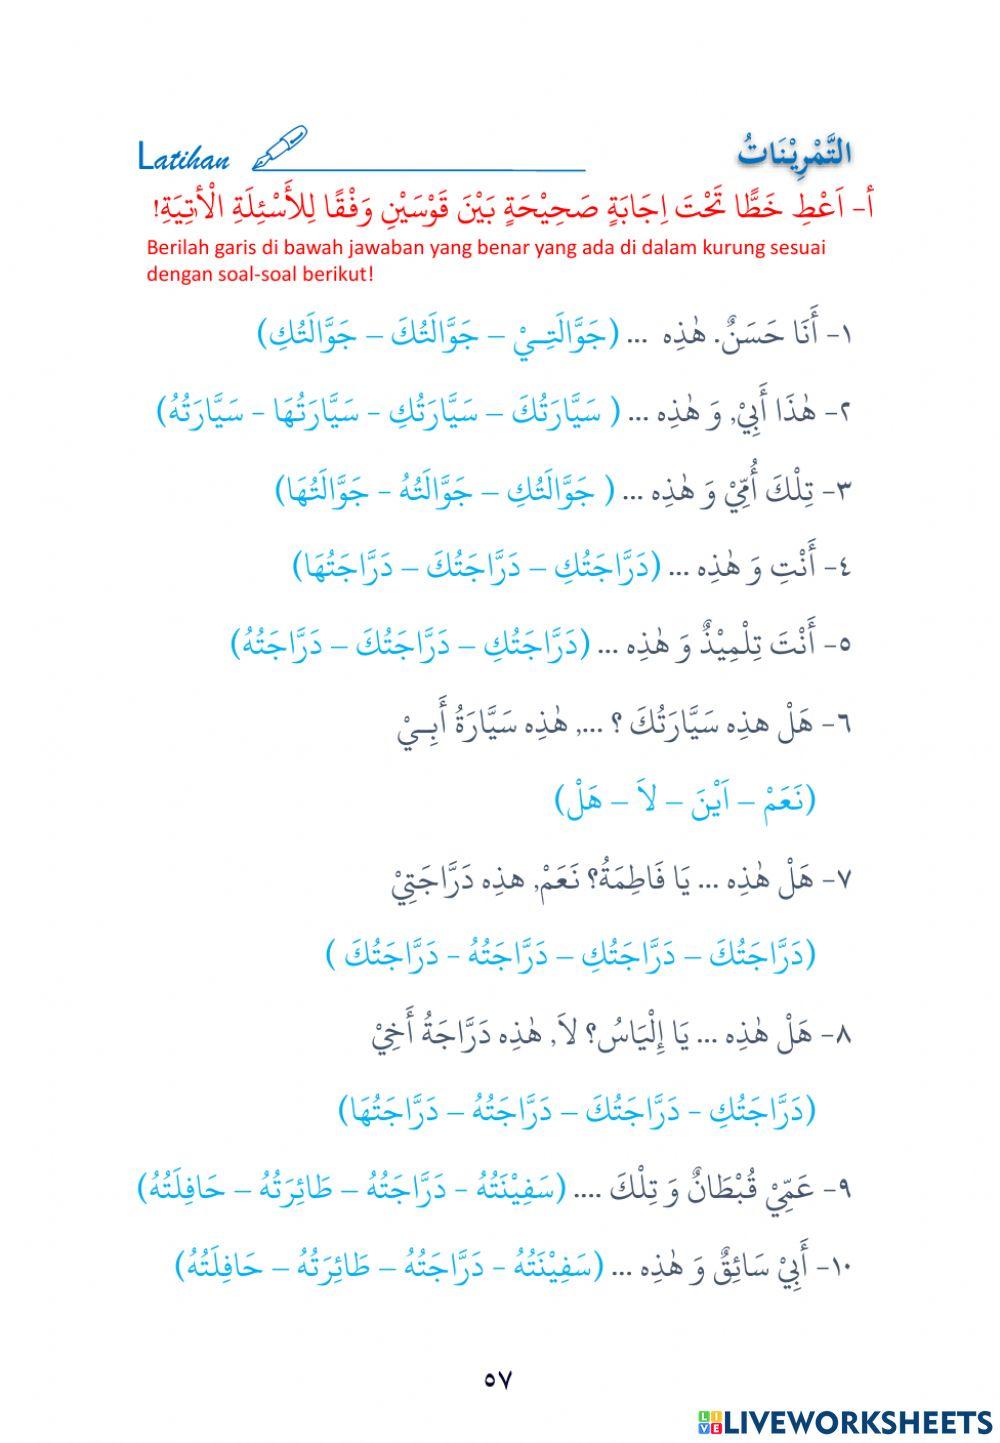 Latihan التَّمْرِيْنَاتُ
أ- اَعْطِ خَطًّا تَحْتَ اِجَابَةٍ صَحِيْحَةٍ بَيْنَ قَوْسَيْنِ وَفْقًا لِلأَسْئِلَةِ الْأتِيَةِ!
Berilah garis di bawah jawaban yang benar yang ada di dalam kurung sesuai
dengan soal-soal berikut!
١- أَنَا حَسَنٌ. هٰذِه ... (جَوَّالَتِيْ – جَوَّالَتُكَ – جَوَّالَتُكِ)
٢- هٰذَا أَبِيْ, وَ هٰذِه ... ( سَيَّارَتُكَ – سَيَّارَتُكِ - سَيَّارَتُهَا - سَيَّارَتُهُ)
٣- تِلْكَ أُمِّيْ وَ هٰذِه ... ( جَوَّالَتُكِ – جَوَّالَتُهُ - جَوَّالَتُهَا)
٤- أَنْتِ وَ هٰذِه ... (دَرَّاجَتُكِ – دَرَّاجَتُكَ – دَرَّاجَتُهَا)
٥- أَنْتَ تِلْمِيْذٌ وَ هٰذِه ... (دَرَّاجَتُكِ – دَرَّاجَتُكَ – دَرَّاجَتُهُ)
٦- هَلْ هذِه سَيَّارَتُكَ ؟ ..., هٰذِه سَيَّارَةُ أَبِيْ
(نَعَمْ – اَيْنَ – لاَ – هَلْ)
٧- هَلْ هٰذِه ... يَا فَاطِمَةُ؟ نَعَمْ, هذِه دَرَّاجَتِيْ
(دَرَّاجَتُكَ – دَرَّاجَتُكِ – دَرَّاجَتُهُ - دَرَّاجَتُكَ )
٨- هَلْ هٰذِه ... يَا إِلْيَاسُ؟ لاَ, هٰذِه دَرَّاجَةُ أَخِيْ
(دَرَّاجَتُكِ - دَرَّاجَتُكَ – دَرَّاجَتُهُ – دَرَّاجَتُهَا)
٩- عَمِّيْ قُبْطَانٌ وَ تِلْكَ .... (سَفِيْنَتُهُ - دَرَّاجَتُهُ – طَائِرَتُهُ – حَافِلَتُهُ)
١٠- أَبِيْ سَائِقٌ وَ هٰذِه ... (سَفِيْنَتُهُ - دَرَّاجَتُهُ – طَائِرَتُهُ – حَافِلَتُهُ)
٥٧
LIVEWORKSHEETS